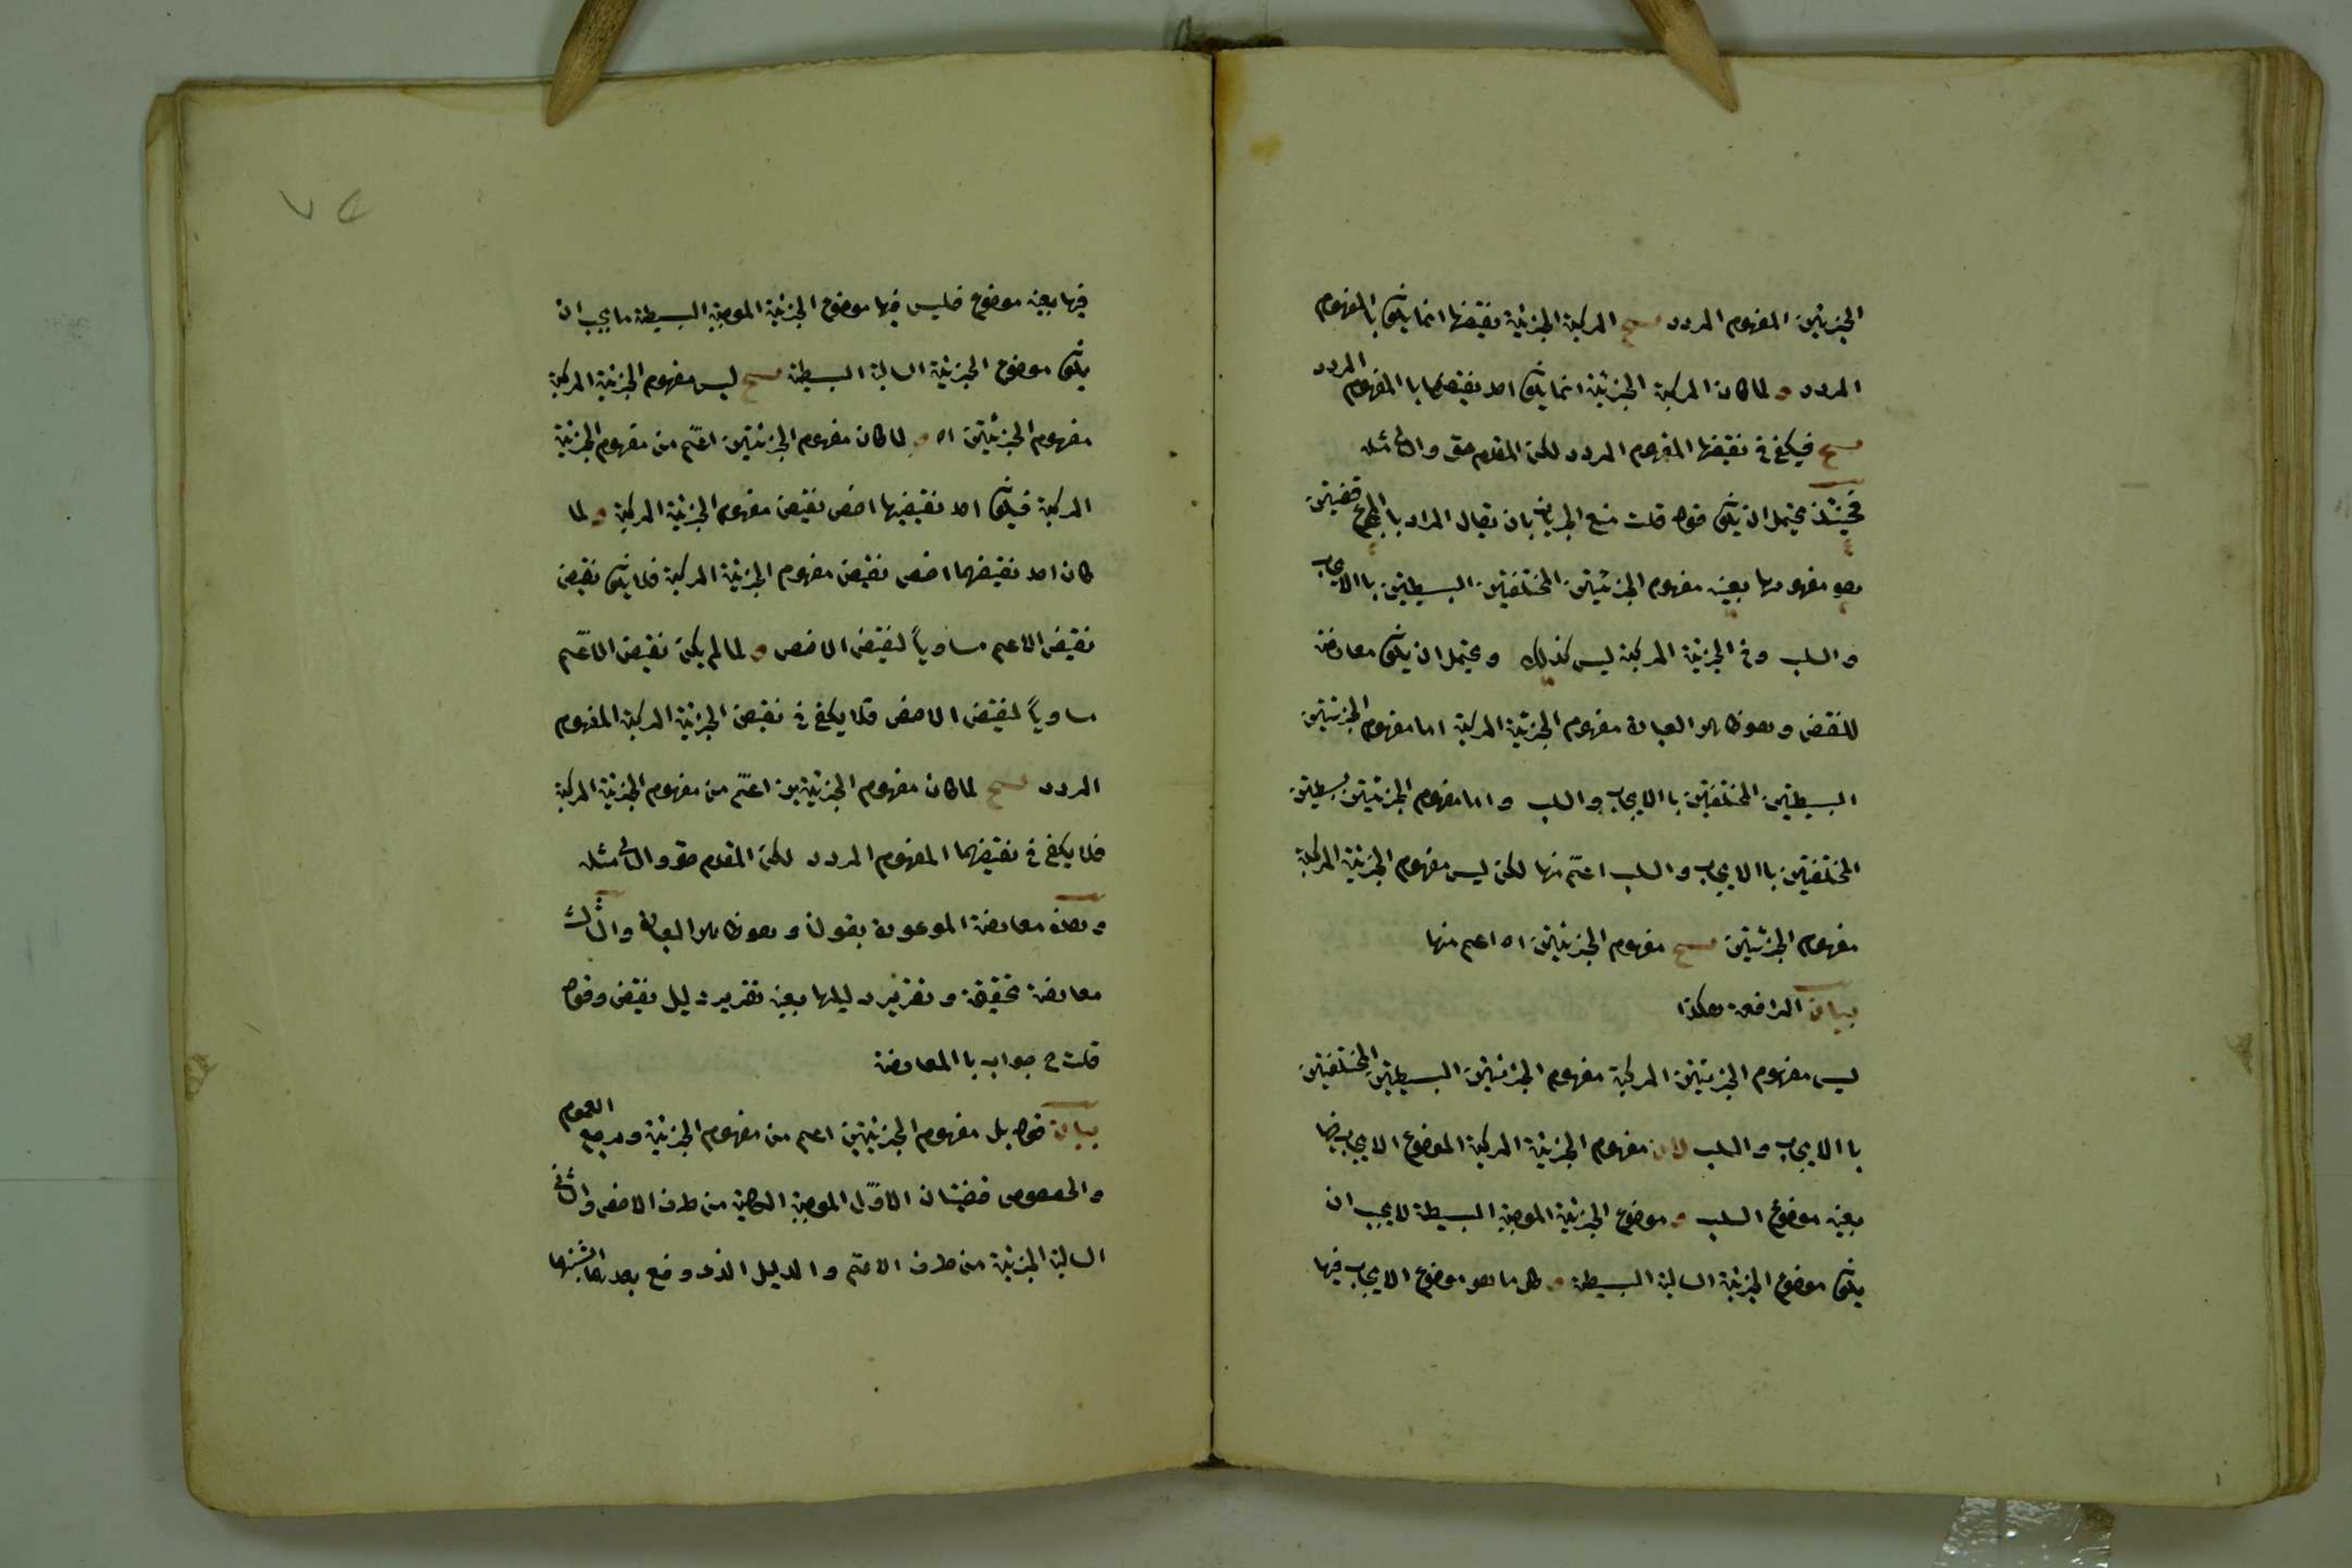 الجزئيتين المفهوم المردد ينتج المركبة الجزئية نقيضها انما يكون بالمفهوم
المردد و لما كان المركبة الجزئية انما يكون احد نقيضهما باالمفهوم المردد
ينتج فيكفى فى نقيضها المفهوم المردد لكن المقدم حق والتالى مثله
فحينئذ يحتمل ان يكون قوله قلت منع الجريان بان يقال المراد بالجزئيتين قضيتين
هو مفهومها بعينه مفهوم الجزئيتين المختلفتين البسيطتين باالايجاب
والسلب وفى الجزئية المركبة ليس كذلك ويحتمل ان يكون معارضة
للنقض وهو ظاهر العبارة مفهوم الجزئية المركبة اما مفهوم الجزئيتين
البسيطتين المختلفتين باالايجاب والسلب واما مفهوم الجزئيتين بسيطتين
المختلفتين باالايجاب والسلب اعم منها لكن ليس مفهوم الجزئية المركبة
مفهوم الجزئيتين ينتج مفهوم الجزئيتين اه اعم منها
بيان الرافعة هكذا
ليس مفهوم الجزئيتين المركبة مفهوم الجزئيتين البسيطتين المختلفتين
باالايجاب والسلب لان مفهوم الجزئية المركبة الموضوع الايجاب فيها
بعينه موضوع السلب و موضوع الجزئية الموجبة البسيطة لا يجب ان
يكون موضوع الجزئية السالبة البسيطة و كل ما هو موضوع الايجاب فيها
فيها بعينه موضوع فليس فيها موضوع الجزئية الموجبة البسيطة ما يجب ان
يكون موضوع الجزئية السالبة البسيطة ينتج ليس مفهوم الجزئية المركبة
مفهوم الجزئيتين اه و لما كان مفهوم الجزئيتين اعم من مفهوم الجزئية
المركبة فيكون احد نقيضيها اخص نقيض مفهوم الجزئية المركبة و لما
كان احد نقيضهما اخص نقيض مفهوم الجزئية المركبة فلا يكون نقيض
نقيض الاعم مساوياً لنقيض الاخص و لما لم يكن نقيض الاعم
مساوياً لنقيض الاخص فلا يكفى فى نقيض الجزئية المركبة المفهوم
المردد ينتج لما كان مفهوم الجزئيتين اعم من مفهوم الجزئية المركبة
فلا يكفى فى نقيضهما المفهوم المردد لكن المقدم حق والتالى مثله
وهذه معارضة الموعودة بقولنا وهو ظاهر العبارة والثالث
معارضة تحقيقية وتقرير دليلها بعينه تقرير دليل نقيض وقوله
قلت ح جواب باالمعارضة
بيان قوله بل مفهوم الجزئيتين اعم من مفهوم الجزئية ومرجع العموم
والخصوص قضيتان الاوّل الموجبة الكلية من طرف الاخص والثانى
السالبة الجزئية من طرف الاعم والدليل الذى وقع بعدها
٧٢